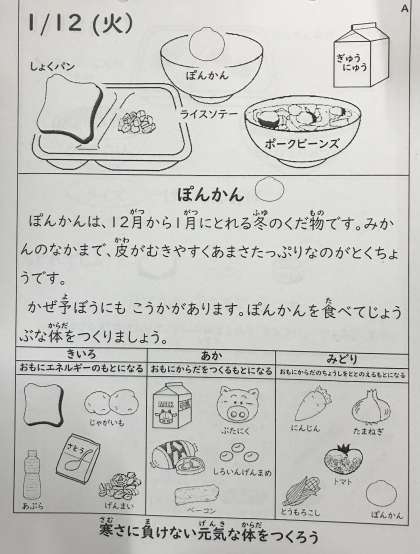 A
1/12(火)
しょくパン
ぽんかん
ライスソテー
ぎゅう
にゅう
ポークビーンズ
ぽんかん
ぽんかんは、12月(がつ)から1月(がつ)にとれる冬(ふゆ)のくだ物(もの)です。みか
んのなかまで、皮(かわ)がむきやすくあまさたっぷりなのがとくちょ
うです。
かぜ予(よ)ぼうにも こうかがあります。ぽんかんを食(た)べてじょう
ぶな体(からだ)をつくりましょう。
きいろ
おもにエネルギーのもとになる
じゃがいも
さとう
あぶら
げんまい
あか
おもにからだをつくるもとになる
MILK
ぶたにく
しろいんげんまめ
ベーコン
みどり
おもにからだのちょうしをととのえるもとになる
にんじん
たまねぎ
トマト
とうもろこし
ぽんかん
寒(さむ)さに負(ま)けない元気(げんき)な体(からだ)をつくろう